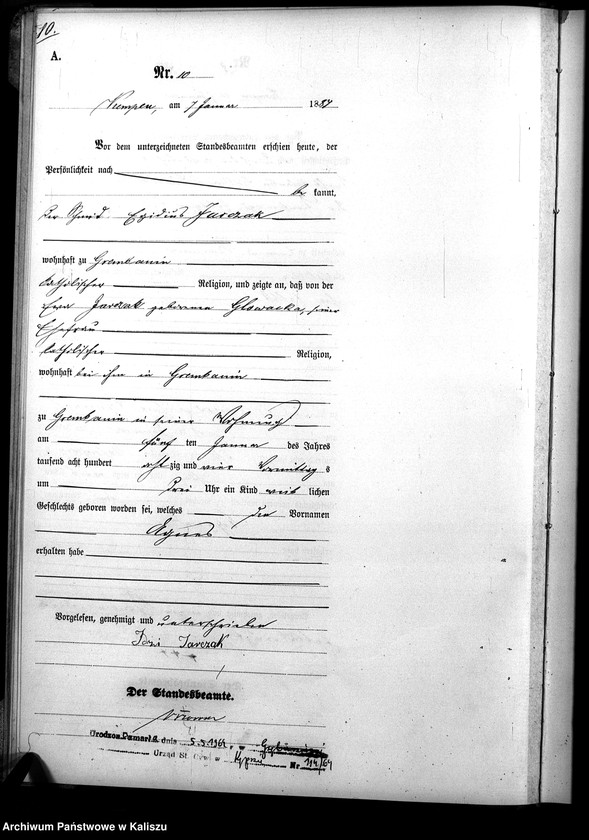 10.
A.
Nr. 10
Kempen, am 7 Januar 1884
Vor dem unterzeichneten Standesbeamten erschien heute, der
Persönlichkeit nach
be kannt,
der Schmid Egidius Jurczak
wohnhaft zu Grembanin
katholischer Religion, und zeigte an, daß von der
Ewa Jurczak geborenen Glowacka, seiner
Ehefrau
katholischer Religion,
wohnhaft bei ihm in Grembanin
zu Grembanin in seiner Wohnung
am fünf ten Januar des Jahres
tausend acht hundert acht zig und vier Vormittag s
um drei Uhr ein Kind weib lichen
Geschlechts geboren worden sei, welches den Vornamen
Agnes
erhalten habe
Vorgelesen, genehmigt und unterschrieben
Idzi Jurczak
Der Standesbeamte.
dnia 5.9.1964 w
Urząd St. Cyw. w Kępnie Nr 114/64
Archiwum Państwowe w Kaliszu